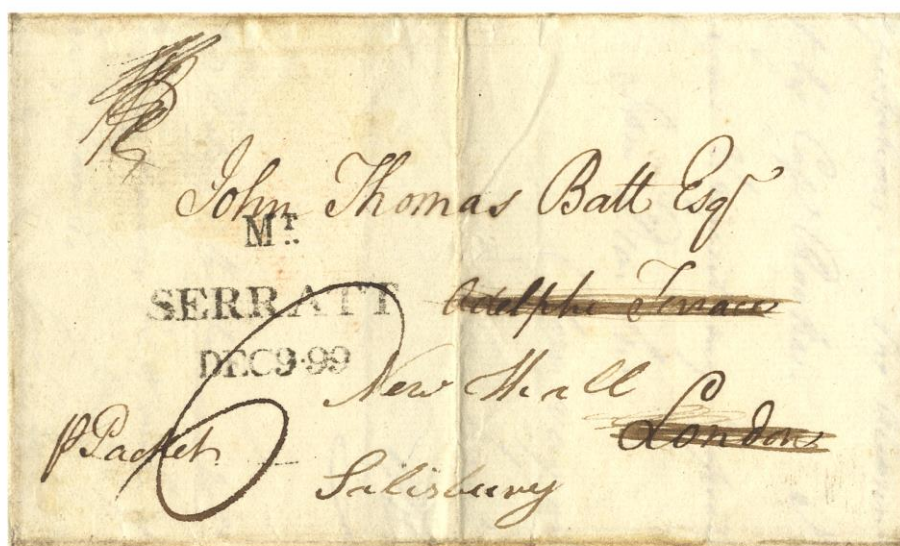 John Thomas Batt Esqr
MT.
SERRATT
DEC9·99
Adelphi Terrace
New Hall
London
p Packet
Salisbury